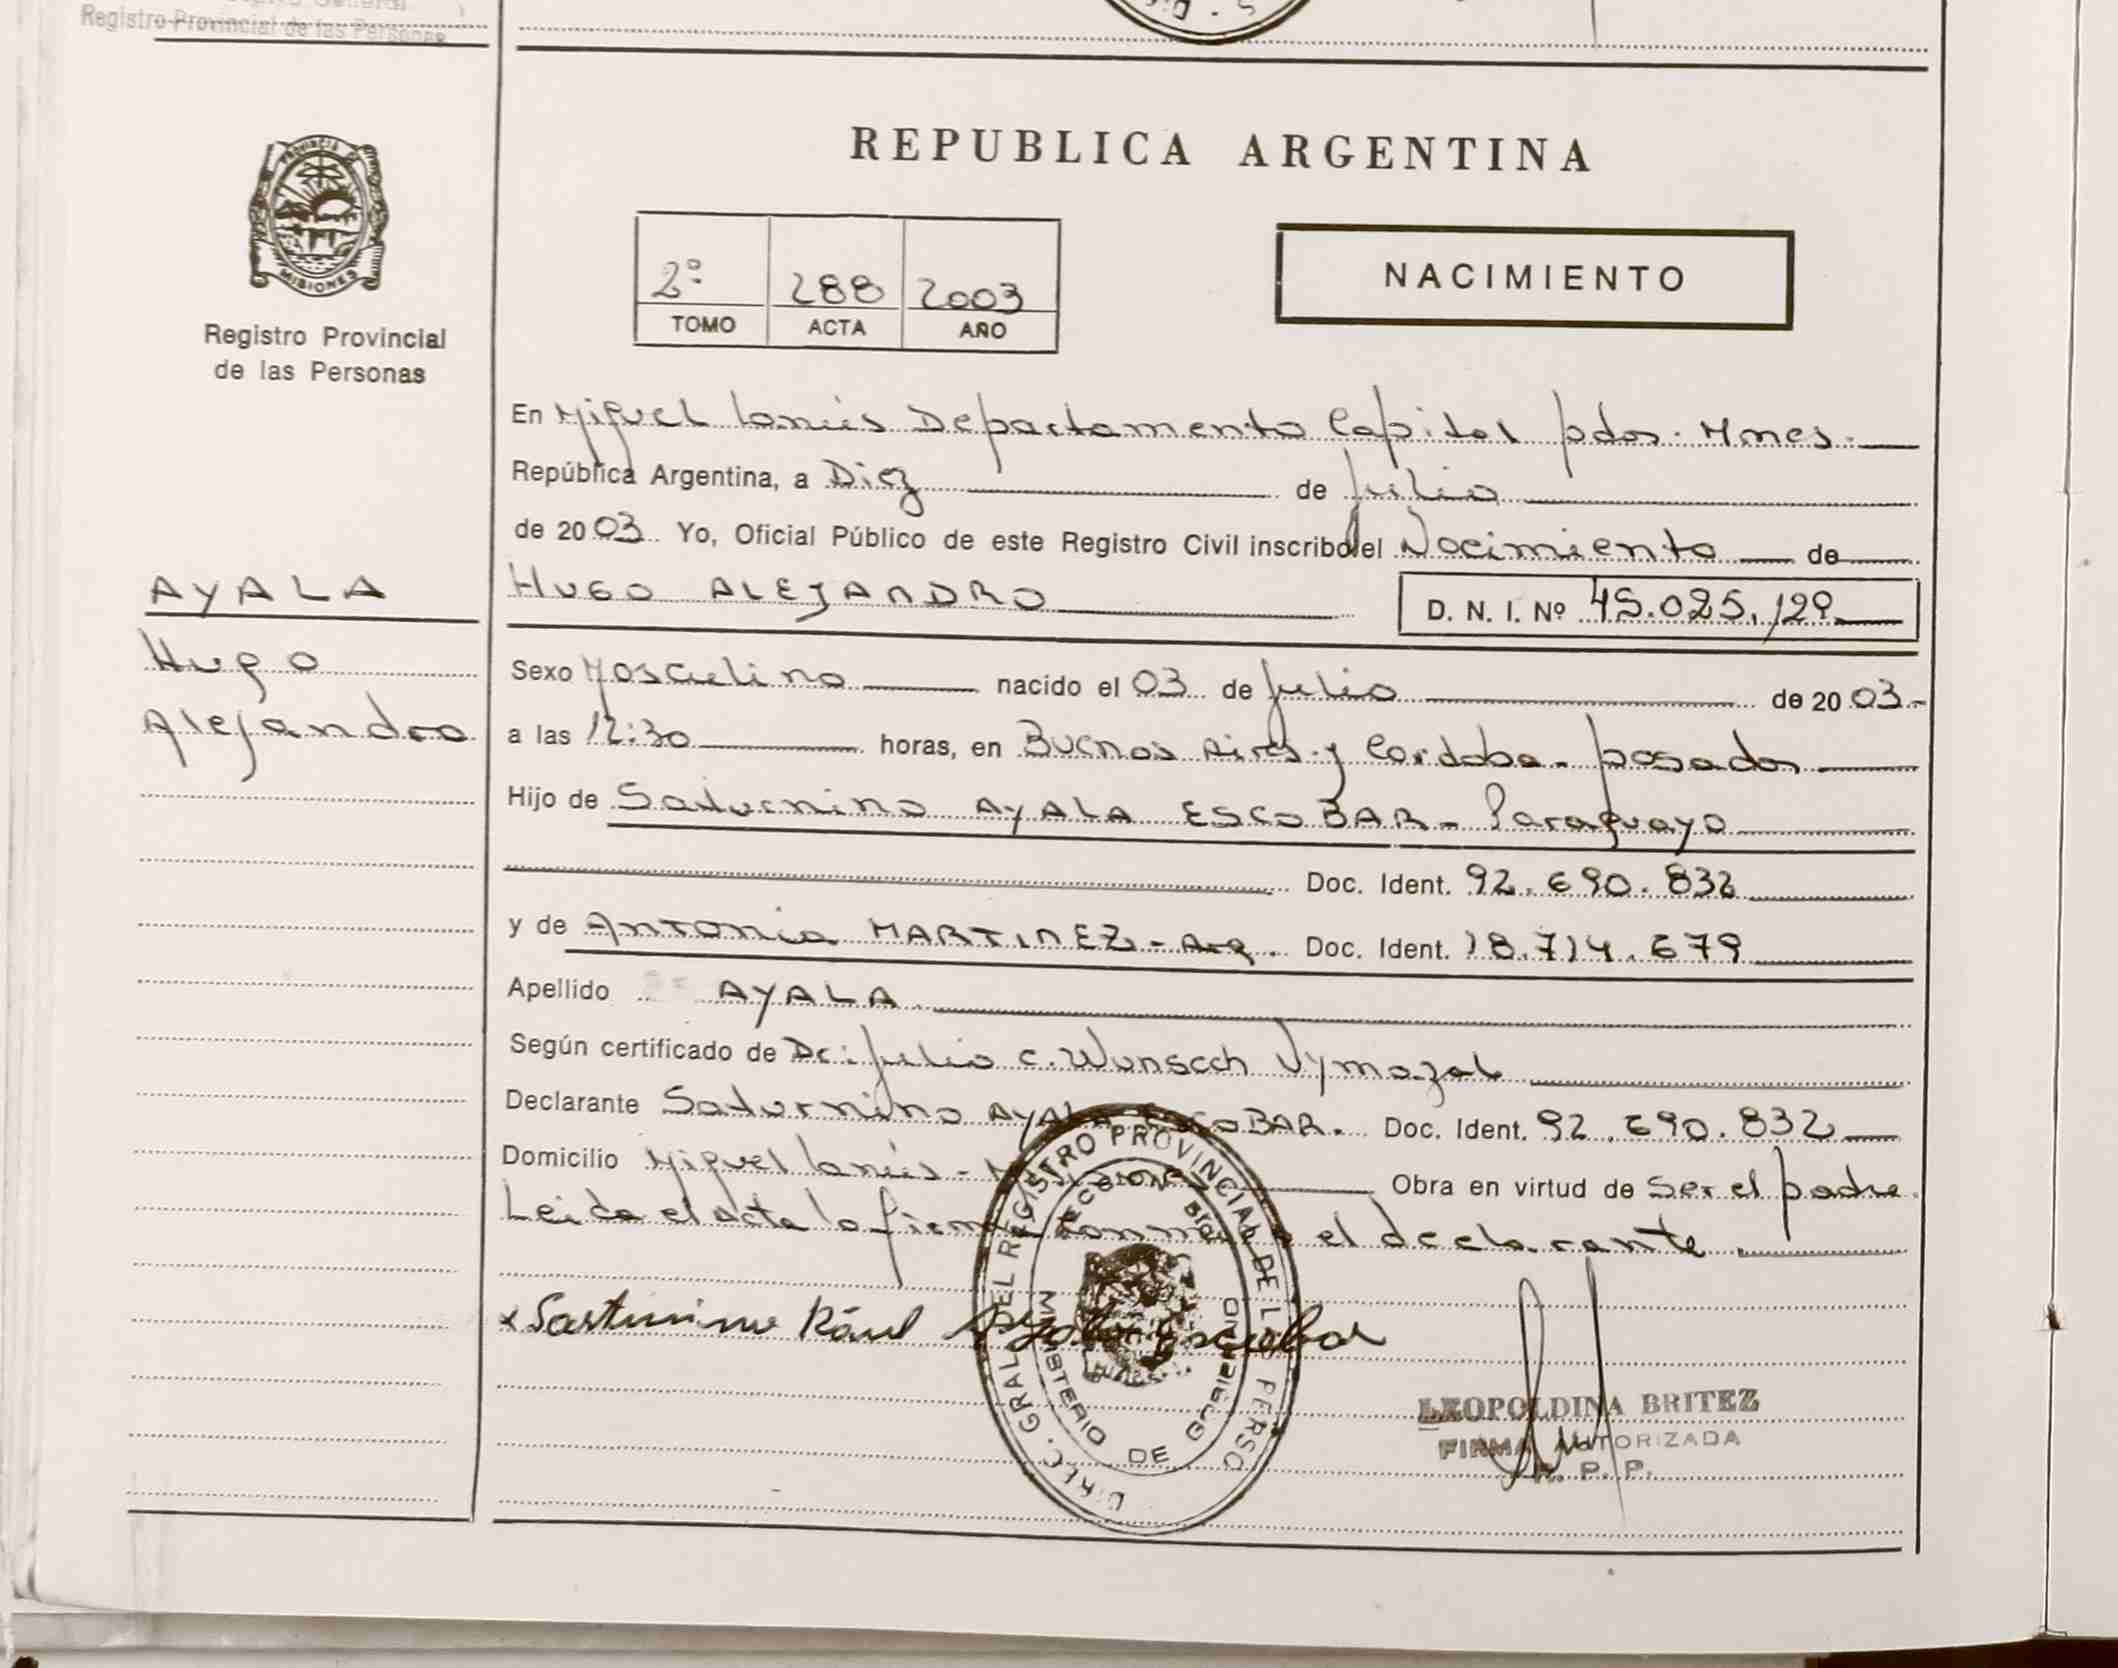 Registro Provincial de las Personas
REPUBLICA ARGENTINA
PROVINCIA DE
MISIONES
Registro Provincial
de las Personas
2º 288 2003
TOMO ACTA AÑO
NACIMIENTO
En Miguel Lanús Departamento Capital pdas. Mnes.
República Argentina, a Diez de Julio
de 2003. Yo, Oficial Público de este Registro Civil inscribo el Nacimiento de
AYALA
Hugo
Alejandro
HUGO ALEJANDRO D. N. I. Nº 45.025.129
Sexo Masculino nacido el 03 de Julio de 2003.-
a las 12:30 horas, en Buenos Aires y Cordoba - posadas
Hijo de Saturnino AYALA ESCOBAR - Paraguayo
Doc. Ident. 92.690.832
y de Antonia MARTINEZ - Arg. Doc. Ident. 18.714.679
Apellido AYALA
Según certificado de Dr: Julio C. Wunsch Vymazal
Declarante Saturnino AYALA ESCOBAR. Doc. Ident. 92.690.832
Domicilio Miguel Lanús - Obra en virtud de Ser el padre.
Leida el acta la firma conmigo el declarante
x Saturnino Raul Ayala Escobar
DIREC. GRAL. DEL REGISTRO PROVINCIAL DE L PERSO
MINISTERIO DE GOBIERNO
MISIONES
LEOPOLDINA BRITEZ
FIRMA AUTORIZADA
R. P. P.